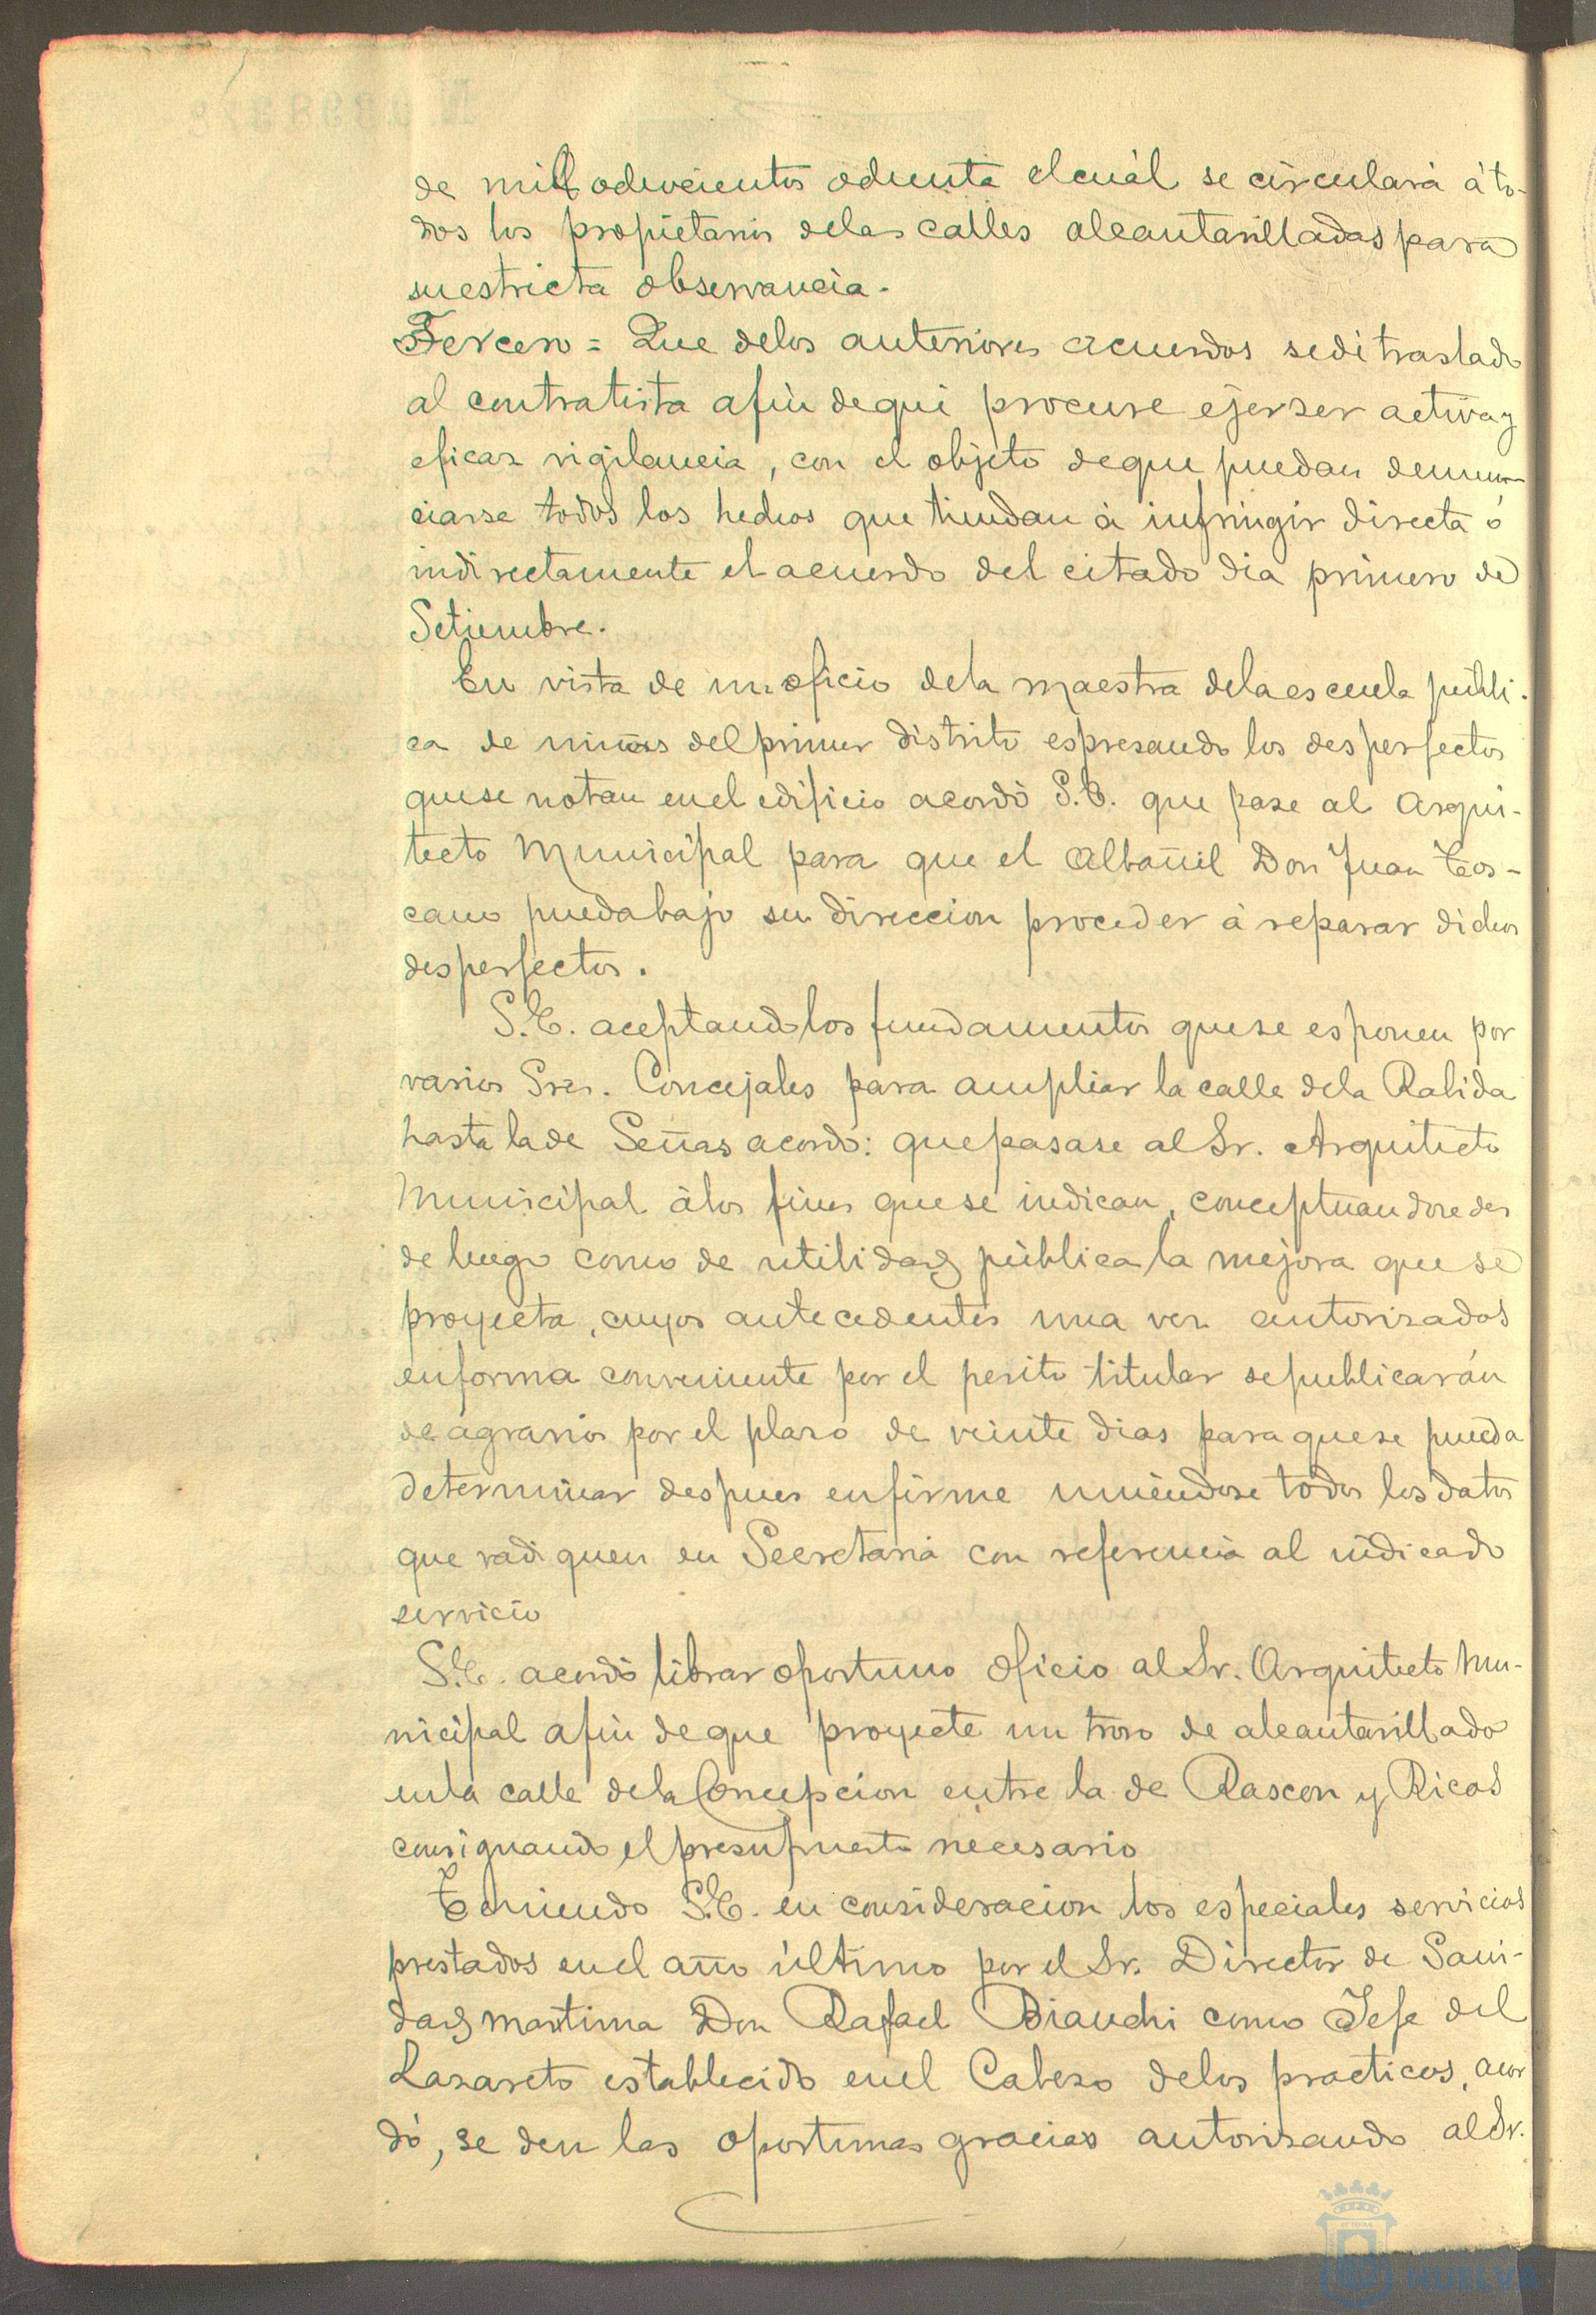 de mill ochocientos ochenta el cuál se circulará á to-
dos los propietarios de las calles alcantarilladas para
su estricta observancia.
Tercero = Que de los anteriores acuerdos se dé traslado
al contratista afin de que procure ejerser activa y
eficaz vigilancia, con el objeto de que puedan denun-
ciarse todos los hechos que tiendan á infringir directa ó
indirectamente el acuerdo del citado dia primero de
Setiembre.
En vista de un oficio de la maestra de la escuela públi-
ca de niñas del primer distrito espresando los desperfectos
que se notan en el edificio acordó S.E. que pase al Arqui-
tecto Municipal para que el Albañil Don Juan Tos-
cano pueda bajo su direccion proceder á reparar dichos
desperfectos.
S.E. aceptando los fundamentos que se esponen por
varios Sres. Concejales para ampliar la calle de la Rabida
hasta la de Señas acordó: que pasase al Sr. Arquitecto
Municipal á los fines que se indican, conceptuandose des
de luego como de utilidad pública la mejora que se
proyecta, cuyos antecedentes una vez autorizados
en forma conveniente por el perito titular se publicarán
de agravios por el plazo de veinte dias para que se pueda
determinar despues en firme uniéndose todos los datos
que radiquen en Secretaria con referencia al indicado
servicio
S.E. acordó librar oportuno oficio al Sr. Arquitecto Mu-
nicipal afin de que proyecte un trozo de alcantarillado
en la calle de la Concepcion entre la de Rascon y Ricos
consignando el presupuesto necesario
Teniendo S.E. en consideracion los especiales servicios
prestados en el año último por el Sr. Director de Sani-
dad maritima Don Rafael Bianchi como Jefe del
Lazareto establecido en el Cabezo de los practicos, acor
dó, se den las oportunas gracias autorizando al Sr.
HUELVA